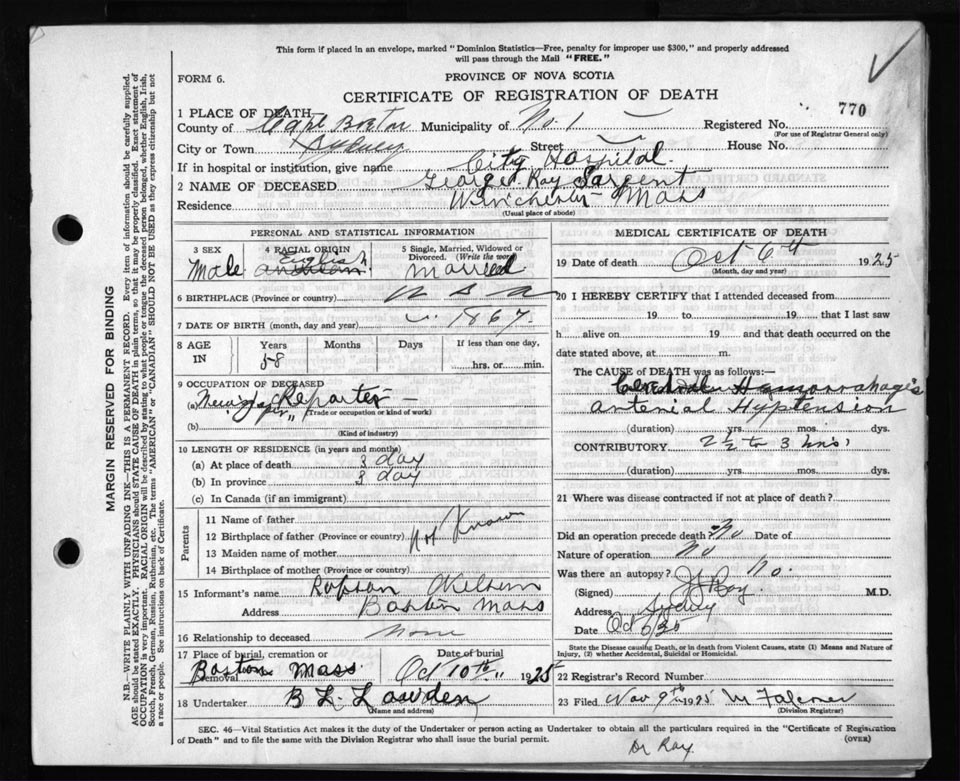 This form if placed in an envelope, marked "Dominion Statistics—Free, penalty for improper use $300," and properly addressed
will pass through the Mail "FREE."
FORM 6.
PROVINCE OF NOVA SCOTIA
CERTIFICATE OF REGISTRATION OF DEATH
770
1 PLACE OF DEATH
County of Cape Breton Municipality of No. 1 Registered No.
(For use of Registrar General only)
City or Town Sydney Street House No.
If in hospital or institution, give name City Hospital.
2 NAME OF DECEASED George Ray Sargent
Residence Winchester Mass
(Usual place of abode)
PERSONAL AND STATISTICAL INFORMATION
3 SEX Male
4 RACIAL ORIGIN English
5 Single, Married, Widowed or Divorced. (Write the word) Married
6 BIRTHPLACE (Province or country) U S A
7 DATE OF BIRTH (month, day and year) 1867.
8 AGE IN Years 58 Months Days If less than one day, hrs. or min.
9 OCCUPATION OF DECEASED
(a) Newspaper Reporter
(Trade or occupation or kind of work)
(b)
(Kind of industry)
10 LENGTH OF RESIDENCE (in years and months)
(a) At place of death 3 day
(b) In province 3 day
(c) In Canada (if an immigrant)
Parents
11 Name of father
12 Birthplace of father (Province or country) Not Known
13 Maiden name of mother
14 Birthplace of mother (Province or country)
15 Informant's name
Address Boston Mass
16 Relationship to deceased None
17 Place of burial, cremation or Removal Boston Mass.
Date of burial Oct 10th 1925
18 Undertaker B L
(Name and address)
MEDICAL CERTIFICATE OF DEATH
19 Date of death Oct 6th 1925
(Month, day and year)
20 I HEREBY CERTIFY that I attended deceased from
19 to 19 that I last saw
h alive on 19 and that death occurred on
date stated above, at m.
The CAUSE OF DEATH was as follows:
Cerebral Hamorrahage's
arterial Hyptension
(duration) yrs. mos. dys.
CONTRIBUTORY 2 1/2 to 3 hrs,
(duration) yrs. mos. dys.
21 Where was disease contracted if not at place of death?
Did an operation precede death? No Date of
Nature of operation No
Was there an autopsy? No.
(Signed) Roy. M.D.
Address Sydney
Date Oct
State the Disease causing Death, or in death from Violent Causes, state (1) Means and Nature of
Injury, (2) whether Accidental, Suicidal or Homicidal.
22 Registrar's Record Number
23 Filed Nov 9th 1925 M Falconer
(Division Registrar)
SEC. 46—Vital Statistics Act makes it the duty of the Undertaker or person acting as Undertaker to obtain all the particulars required in the "Certificate of Registration
of Death" and to file the same with the Division Registrar who shall issue the burial permit.
(OVER)
Dr Roy
MARGIN RESERVED FOR BINDING
N.B.—WRITE PLAINLY WITH UNFADING INK—THIS IS A PERMANENT RECORD. Every item of information should be carefully supplied.
AGE should be stated EXACTLY. PHYSICIANS should STATE CAUSE OF DEATH in plain terms, so that it may be properly classified. Exact statement of
OCCUPATION is very important. RACIAL ORIGIN will be described by stating to what people or tongue the deceased person belonged, whether English, Irish,
Scotch, French, German, Russian, Ruthenian, etc. The terms "AMERICAN" or "CANADIAN" SHOULD NOT BE USED as they express citizenship but not
a race or people. See instructions on back of Certificate.